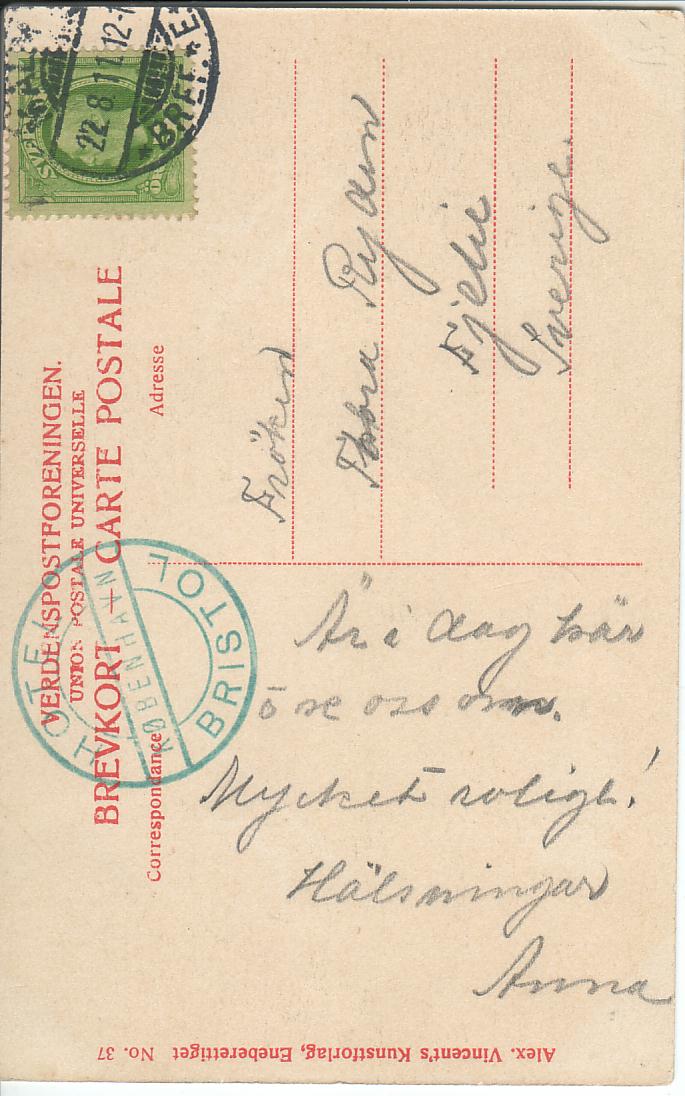 VERDENSPOSTFORENINGEN.
UNION POSTALE UNIVERSELLE
BREVKORT — CARTE POSTALE
Correspondance
Adresse
22.8.11.12-1
BREF.
HOTEL BRISTOL
KØBENHAVN
Fröken
Thora Ryden
Fjelie
Sverige.
Är i dag här
o se oss om.
Mycket roligt!
Hälsningar
Anna
Alex. Vincent's Kunstforlag, Eneberettiget No. 37